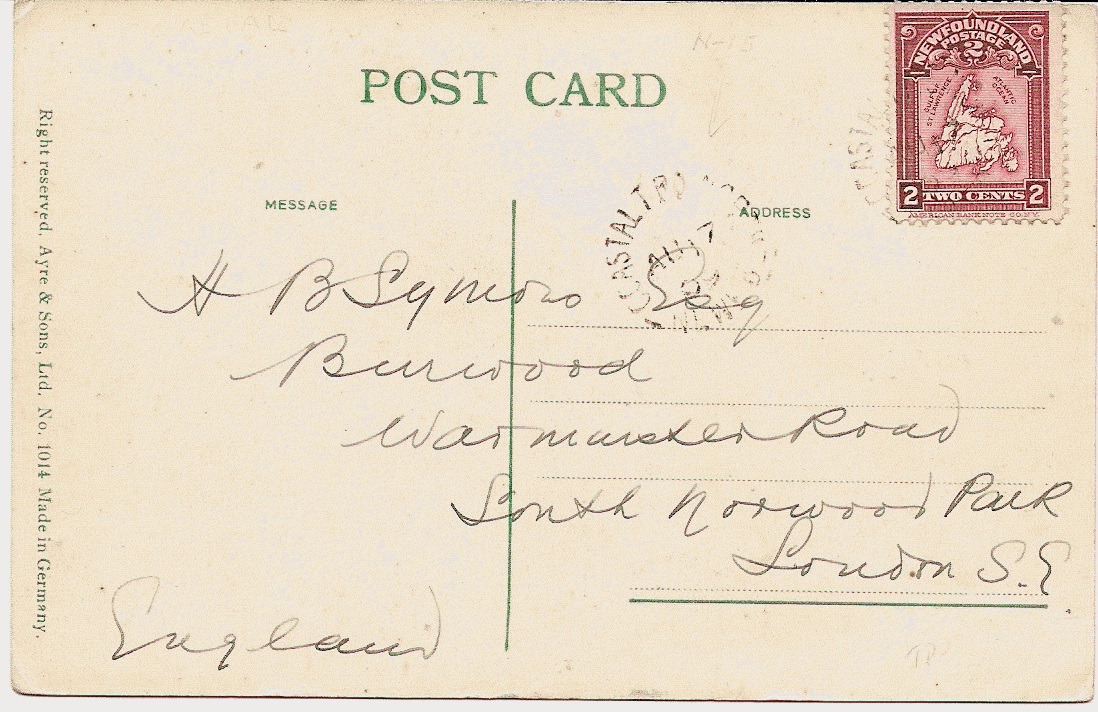 N-15
POST CARD
NEWFOUNDLAND
POSTAGE
2
GULF OF
ST LAWRENCE
ATLANTIC
OCEAN
2 TWO CENTS 2
AMERICAN BANK NOTE CO. N.Y.
MESSAGE
ADDRESS
COASTAL T.P.O.
AU 17
H B Symons Esq
Burwood
Warminster Road
South Norwood Park
London S.E
England
Right reserved. Ayre & Sons, Ltd. No. 1014 Made in Germany.